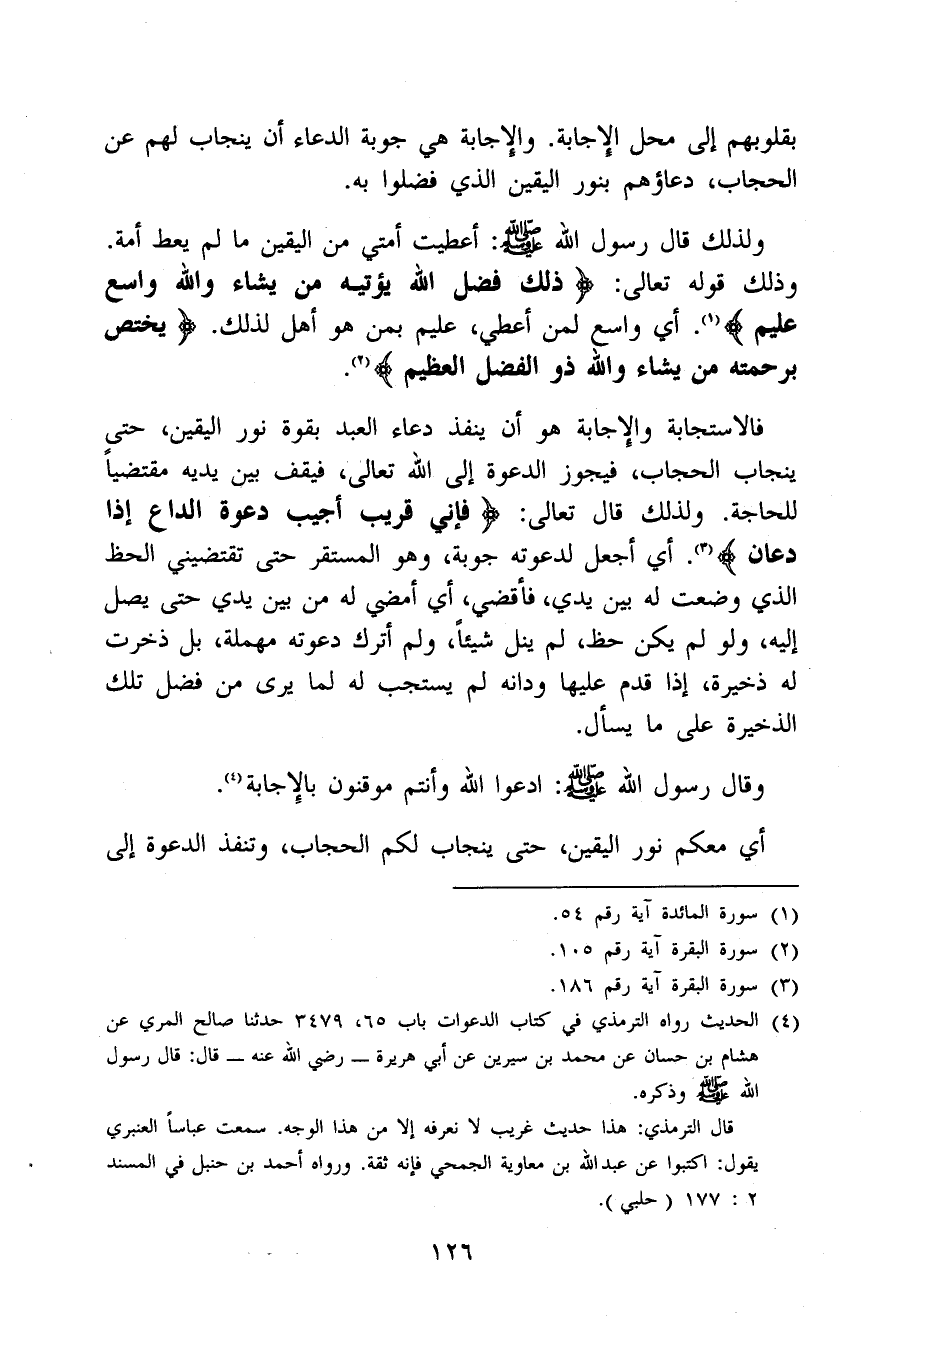 بقلوبهم إلى محل الإجابة. والإجابة هي جوبة الدعاء أن ينجاب لهم عن
الحجاب، دعاؤهم بنور اليقين الذي فضلوا به.
ولذلك قال رسول الله ﷺ: أعطيت أمتي من اليقين ما لم يعط أمة.
وذلك قوله تعالى: ﴿ ذلك فضل الله يؤتيه من يشاء والله واسع
عليم ﴾(١). أي واسع لمن أعطي، عليم بمن هو أهل لذلك. ﴿ يختص
برحمته من يشاء والله ذو الفضل العظيم ﴾(٢).
فالاستجابة والإجابة هو أن ينفذ دعاء العبد بقوة نور اليقين، حتى
ينجاب الحجاب، فيجوز الدعوة إلى الله تعالى، فيقف بين يديه مقتضياً
للحاجة. ولذلك قال تعالى: ﴿ فإني قريب أجيب دعوة الداع إذا
دعان ﴾(٣). أي أجعل لدعوته جوبة، وهو المستقر حتى تقتضيني الحظ
الذي وضعت له بين يدي، فأقضي، أي أمضي له من بين يدي حتى يصل
إليه، ولو لم يكن حظ، لم ينل شيئاً، ولم أترك دعوته مهملة، بل ذخرت
له ذخيرة، إذا قدم عليها ودانه لم يستجب له لما يرى من فضل تلك
الذخيرة على ما يسأل.
وقال رسول الله ﷺ: ادعوا الله وأنتم موقنون بالإجابة(٤).
أي معكم نور اليقين، حتى ينجاب لكم الحجاب، وتنفذ الدعوة إلى
(١) سورة المائدة آية رقم ٥٤.
(٢) سورة البقرة آية رقم ١٠٥.
(٣) سورة البقرة آية رقم ١٨٦.
(٤) الحديث رواه الترمذي في كتاب الدعوات باب ٦٥، ٣٤٧٩ حدثنا صالح المري عن
هشام بن حسان عن محمد بن سيرين عن أبي هريرة ــ رضي الله عنه ــ قال: قال رسول
الله ﷺ وذكره.
قال الترمذي: هذا حديث غريب لا نعرفه إلا من هذا الوجه. سمعت عباساً العنبري
يقول: اكتبوا عن عبدالله بن معاوية الجمحي فإنه ثقة. ورواه أحمد بن حنبل في المسند
٢ : ١٧٧ ( حلبي ).
١٢٦